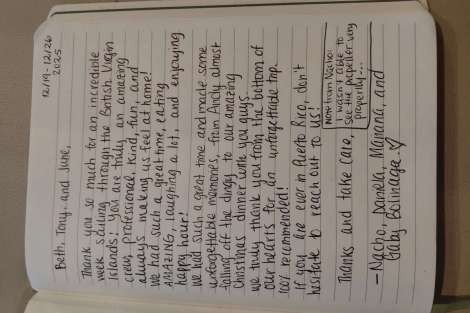 12/19 - 12/26
2025
Beth, Tony, and June,
Thank you so much for an incredible
week sailing through the British Virgin
Islands! You are truly an amazing
crew, professional, kind, fun, and
always making us feel at home!
We had such a great time, eating
AMAZING, laughing a lot, and enjoying
happy hour!
We had such a great time and made some
unforgettable memories, from Andy almost
falling off the dingy to our amazing
Christmas dinner with you guys.
We truly thank you from the bottom of
our hearts for an unforgettable trip.
100% recommended!
If you are ever in Puerto Rico, don't
hesitate to reach out to us!
Thanks and take care,
- Nacho, Daniela, Mariana, and
Gaby Bolinaga ♡
Note from Nacho:
I wasn't able to
see the propeller very
properly...